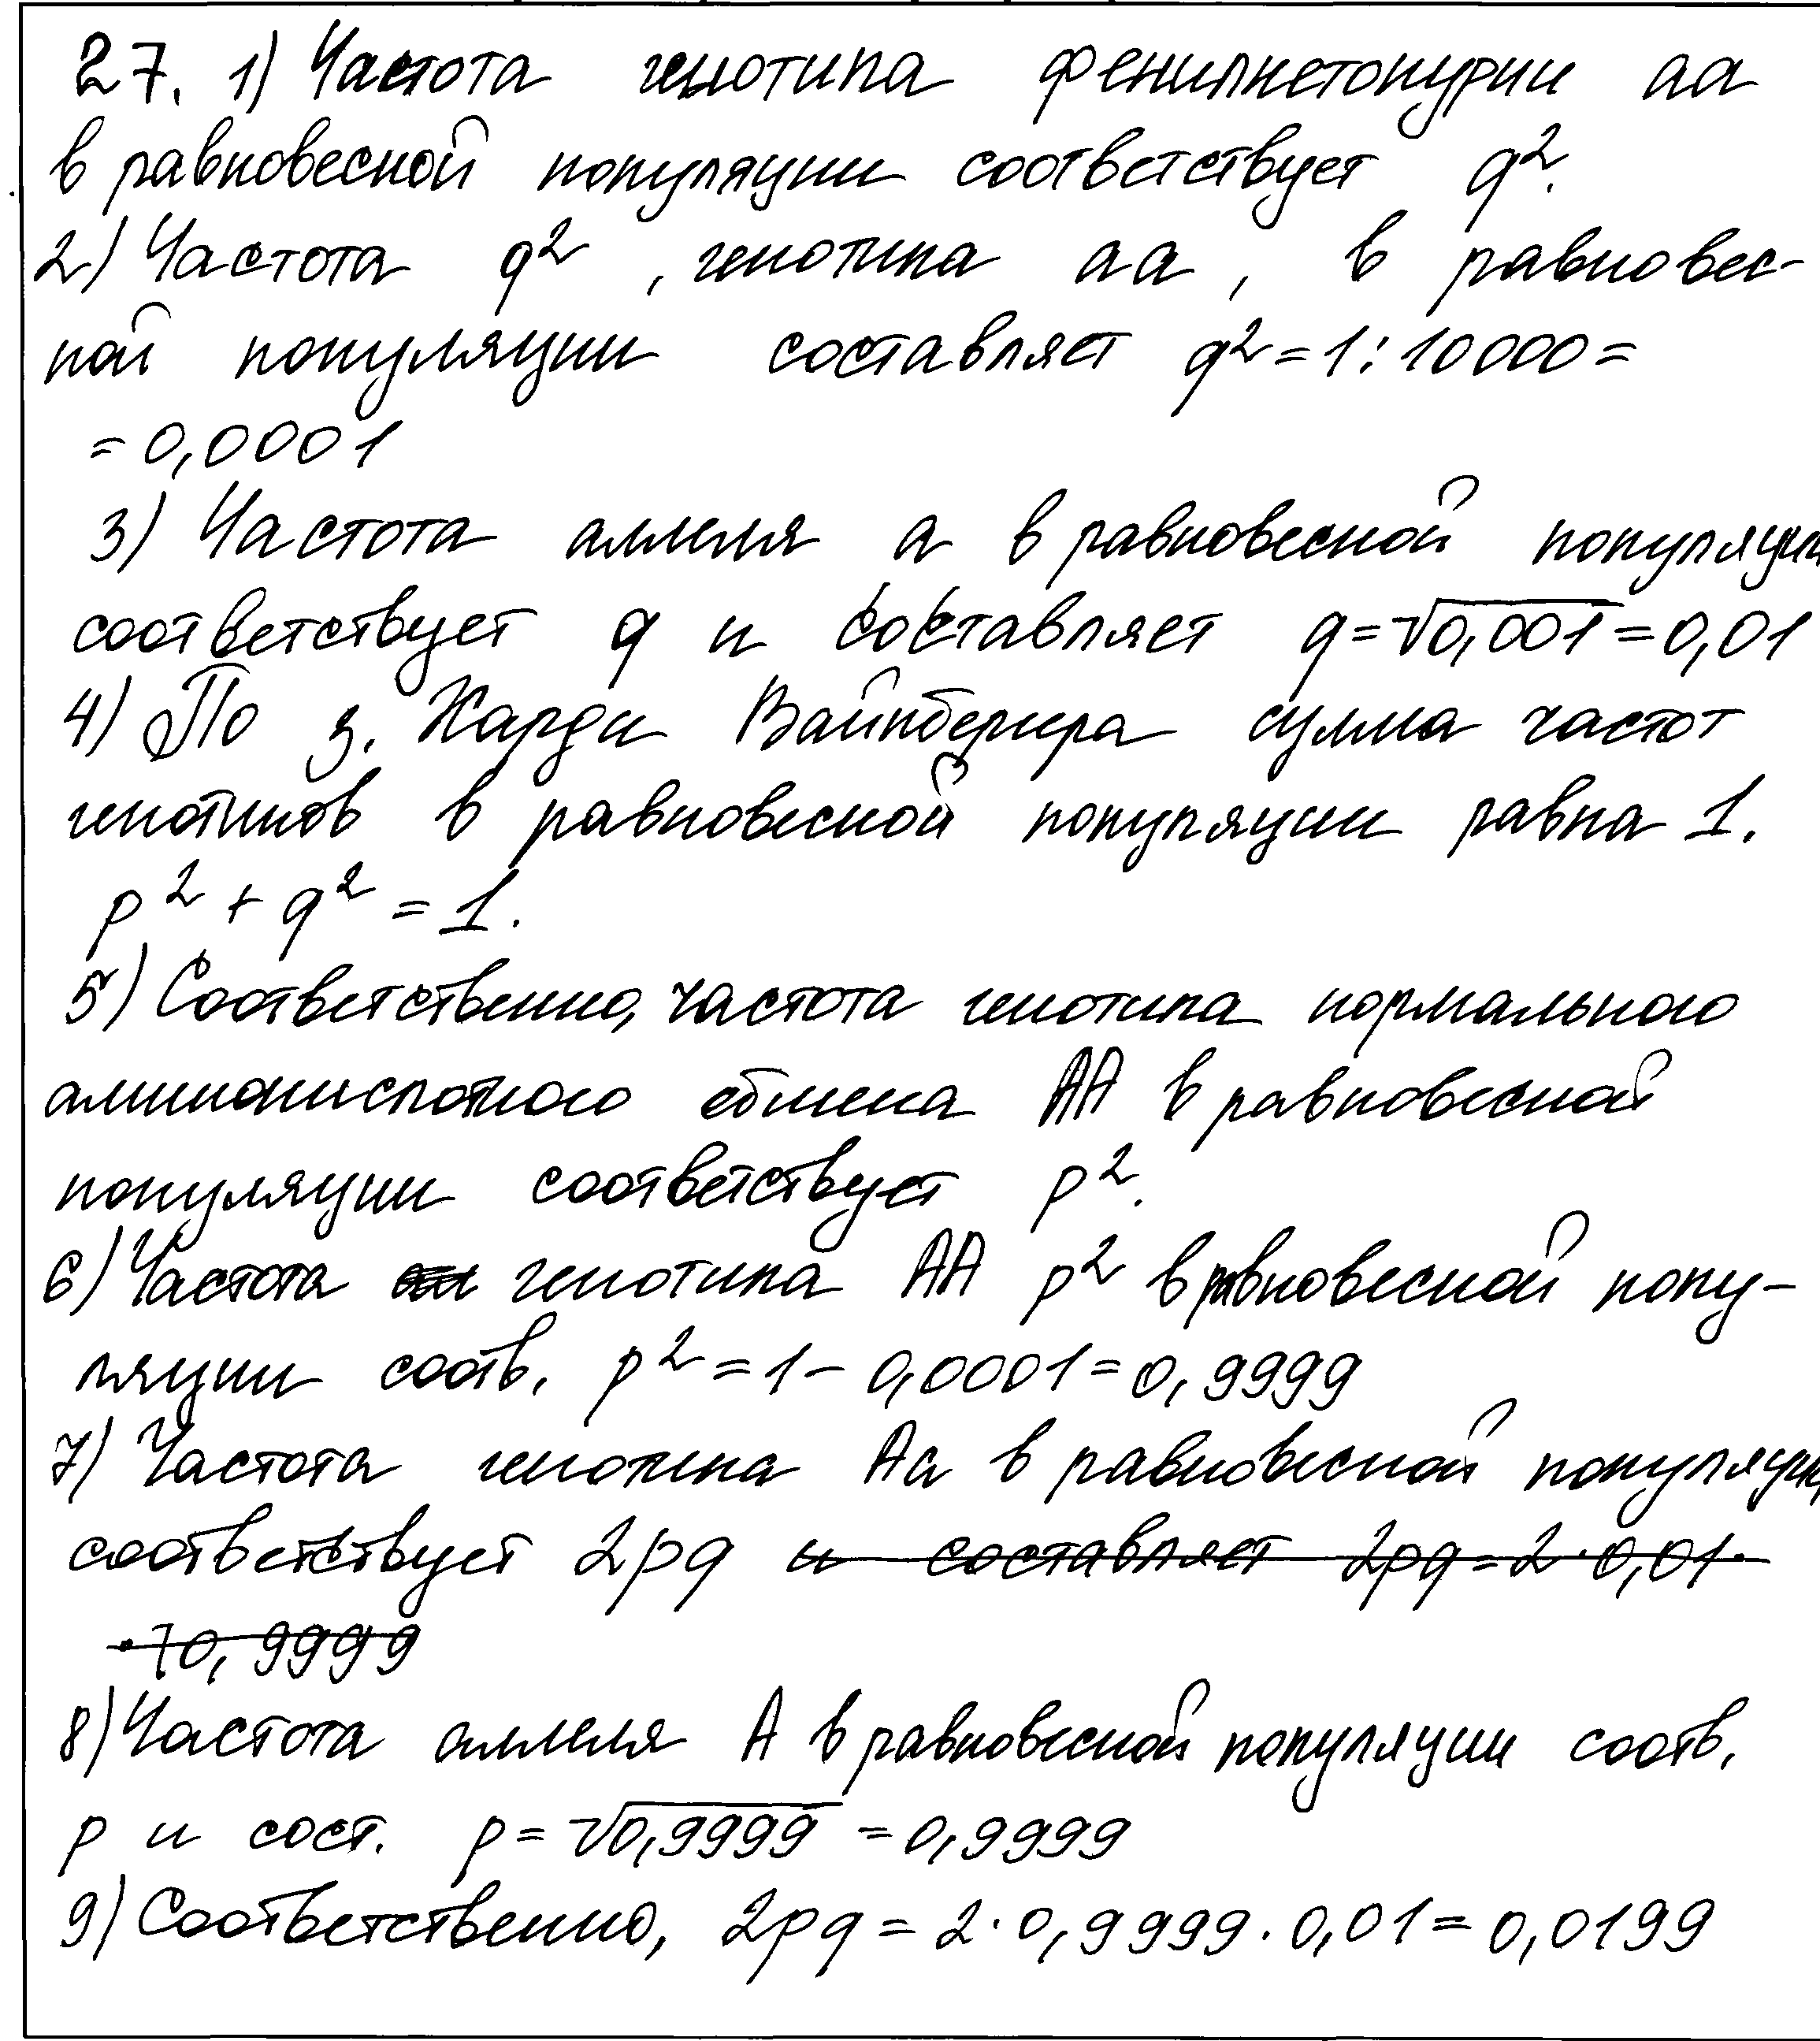 27. 1) Частота генотипа фенилкетонурии аа
в равновесной популяции соответствует q².
2) Частота q², генотипа аа, в равновес-
ной популяции составляет q² = 1 : 10000 =
= 0,0001
3) Частота аллеля а в равновесной популяции
соответствует q и составляет q = √0,001 = 0,01
4) По з. Харди Вайнберга сумма частот
генотипов в равновесной популяции равна 1.
p² + q² = 1.
5) Соответственно, частота генотипа нормального
аминокислотного обмена АА в равновесной
популяции соответствует p².
6) Частота генотипа АА p² в равновесной попу-
ляции соотв. p² = 1 - 0,0001 = 0,9999
7) Частота генотипа Аа в равновесной популяции
соответствует 2pq и составляет 2pq = 2 · 0,01 ·
· 0,9999
8) Частота аллеля А в равновесной популяции соотв.
p и сост. p = √0,9999 = 0,9999
9) Соответственно, 2pq = 2 · 0,9999 · 0,01 = 0,0199